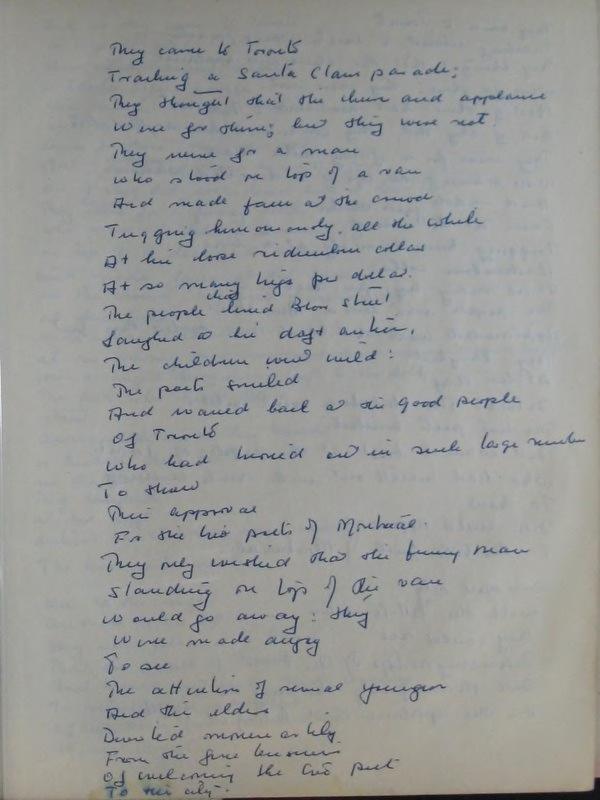 They came to Toronto
Trailing a Santa Claus parade;
They thought that the cheers and applause
Were for them; but they were not.
They were for a man
Who stood on top of a van
And made faces at the crowd
Tugging humorously, all the while
At his loose ridiculous collar
At so many tugs per dollar.
The people that lined Bloor Street
Laughed at his daft antics,
The children went wild:
The poets smiled
And waved back at the good people
Of Toronto
Who had turned out in such large number
To show
Their approval
For the two poets of Montreal.
They only wished that the funny man
Standing on top of the van
Would go away: they
Were made angry
To see
The attention of several youngsters
And the elders
Diverted momentarily
From the fine business
Of welcoming the two poets
To the city.